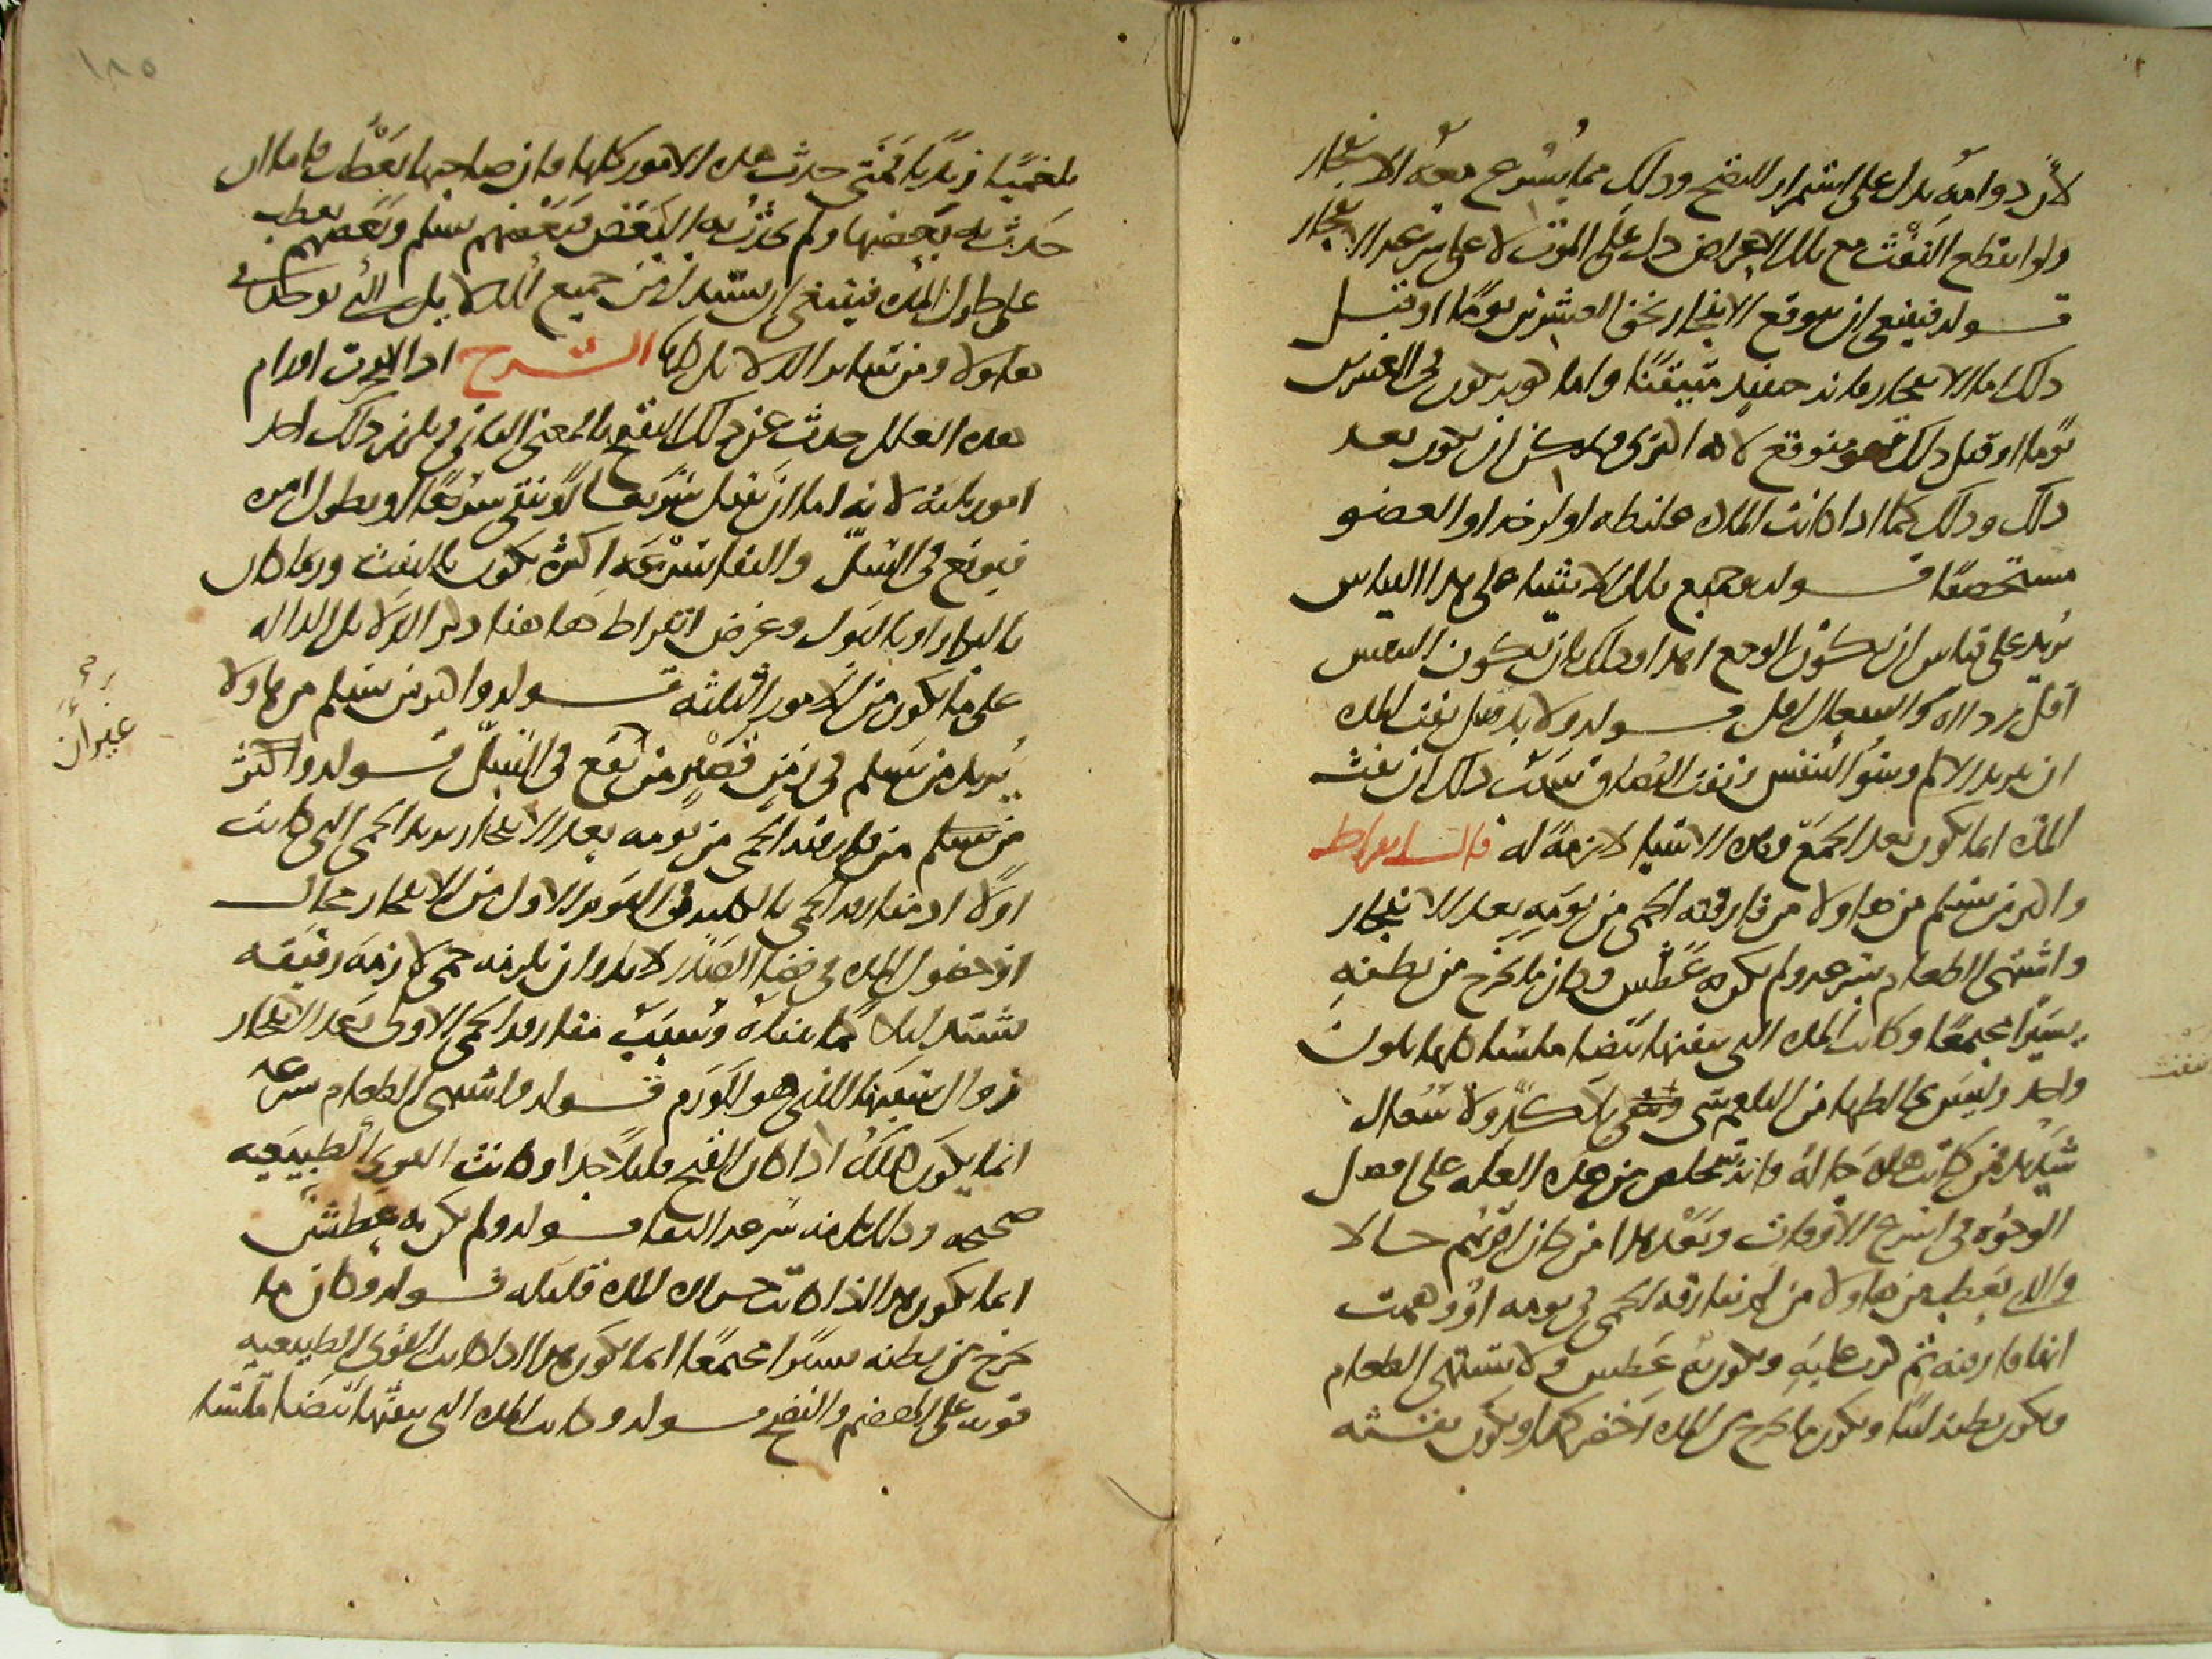 لأن دوامه يدل على استمرار النضج وذلك مما يسرع معه الانفجار
ولو انقطع النفث مع تلك الاعراض دل على الموت لا على سرعة الانفجار
قوله فينبغي ان يتوقع الانفجار نحو العشرين يوما او قبل
ذلك اما الانفجار فانه حينئذ متيقنا واما كونه يكون في العشرين
يوما او قبل ذلك فهو متوقع لانه اكثري ويمكن ان يكون بعد
ذلك وذلك كما اذا كانت المادة غليظة او لزجة او العضو
مستحصفا قوله وجميع تلك الاشياء على هذا القياس
يريد على قياس ان يكون الوجع اهدا وذلك بان يكون النفس
اقل رداءة والسعال اقل قوله ولا بد قبل نفث المدة
ان يريد الالم وسوء النفس ونفث البصاق سبب ذلك ان نفث
المدة انما يكون بعد الجمع وهذه الاشياء لازمة له قال ابقراط
والذين يسلم من هاولا من فارقته الحمى من يومه بعد الانفجار
واشتهى الطعام بسرعة ولم يكن به عطش وكان ما يخرج من بطنه
يسيرا مجتمعا وكانت المدة التي ينفثها بيضا ملسا كلها بلون
واحد وليس يخالطها من البلغم شي وتنقى بلا كد ولا سعال
شديد فمن كانت هذه حاله فانه يتخلص من هذه العلة على افضل
الوجوه في اسرع الاوقات وبعد هذا من كان اقربهم حالا
والذي يعطب من هاولا من لم تفارقه الحمى في يومه او وهمت
انها فارقته ثم كرت عليه ويكون به عطش ولا يشتهي الطعام
ويكون بطنه لينا ويكون ما يخرج من المدة اخضر كمدا ويكون نفثه
ينفث
١٨٥
بلغميا زبديا فمتى حدثت هذه الامور كلها فان صاحبها يعطب فاما ان
حدث به بعضها ولم يحدث به البعض فبعضهم يسلم وبعضهم يعطب
على طول المدة فينبغي ان يستدل من جميع الدلايل التي توجد في
هاولا ومن ساير الدلايل كلها الشرح اذا حدثت اورام
هذه العلل حدث عن ذلك التقيح بالمعنى الثاني فيلزم ذلك احد
امور ثلثة لانه اما ان يقتل سريعا او ينقى سريعا او يطول امره
فيوقع في السل والنقا بسرعة اكثره يكون بالنفث وربما كان
بالبراز او بالبول وغرض ابقراط هاهنا ذكر الدلايل الدالة
على ما يكون من الامور الثلثة قوله والذين يسلم من هاولا
يريد من يسلم في زمن قصير من يقع في السل قوله واكثر
من يسلم من فارقته الحمى من يومه بعد الانفجار يريد الحمى التي كانت
اولا اذ مفارقة الحمى بالكلية في اليوم الاول من الانفجار محال
اذ حصول المدة في فضا الصدر لا بد وان يلزمه حمى لازمة دقيقة
تشتد ليلا كما بيناه وسبب مفارقة الحمى الاولى بعد الانفجار
زوال سببها الذي هو الورم قوله واشتهى الطعام بسرعة
انما يكون ذلك اذا كان القيح قليلا جدا وكانت القوى الطبيعية
صحيحة وذلك يلزمه سرعة النقا قوله ولم يكن به عطش
انما يكون هذا اذا كانت المدة قليلة قوله وكان ما
يخرج من بطنه يسيرا مجتمعا انما يكون هذا اذا كانت القوى الطبيعية
قوية على الهضم والنضج قوله وكانت المدة التي ينفثها بيضا ملسا